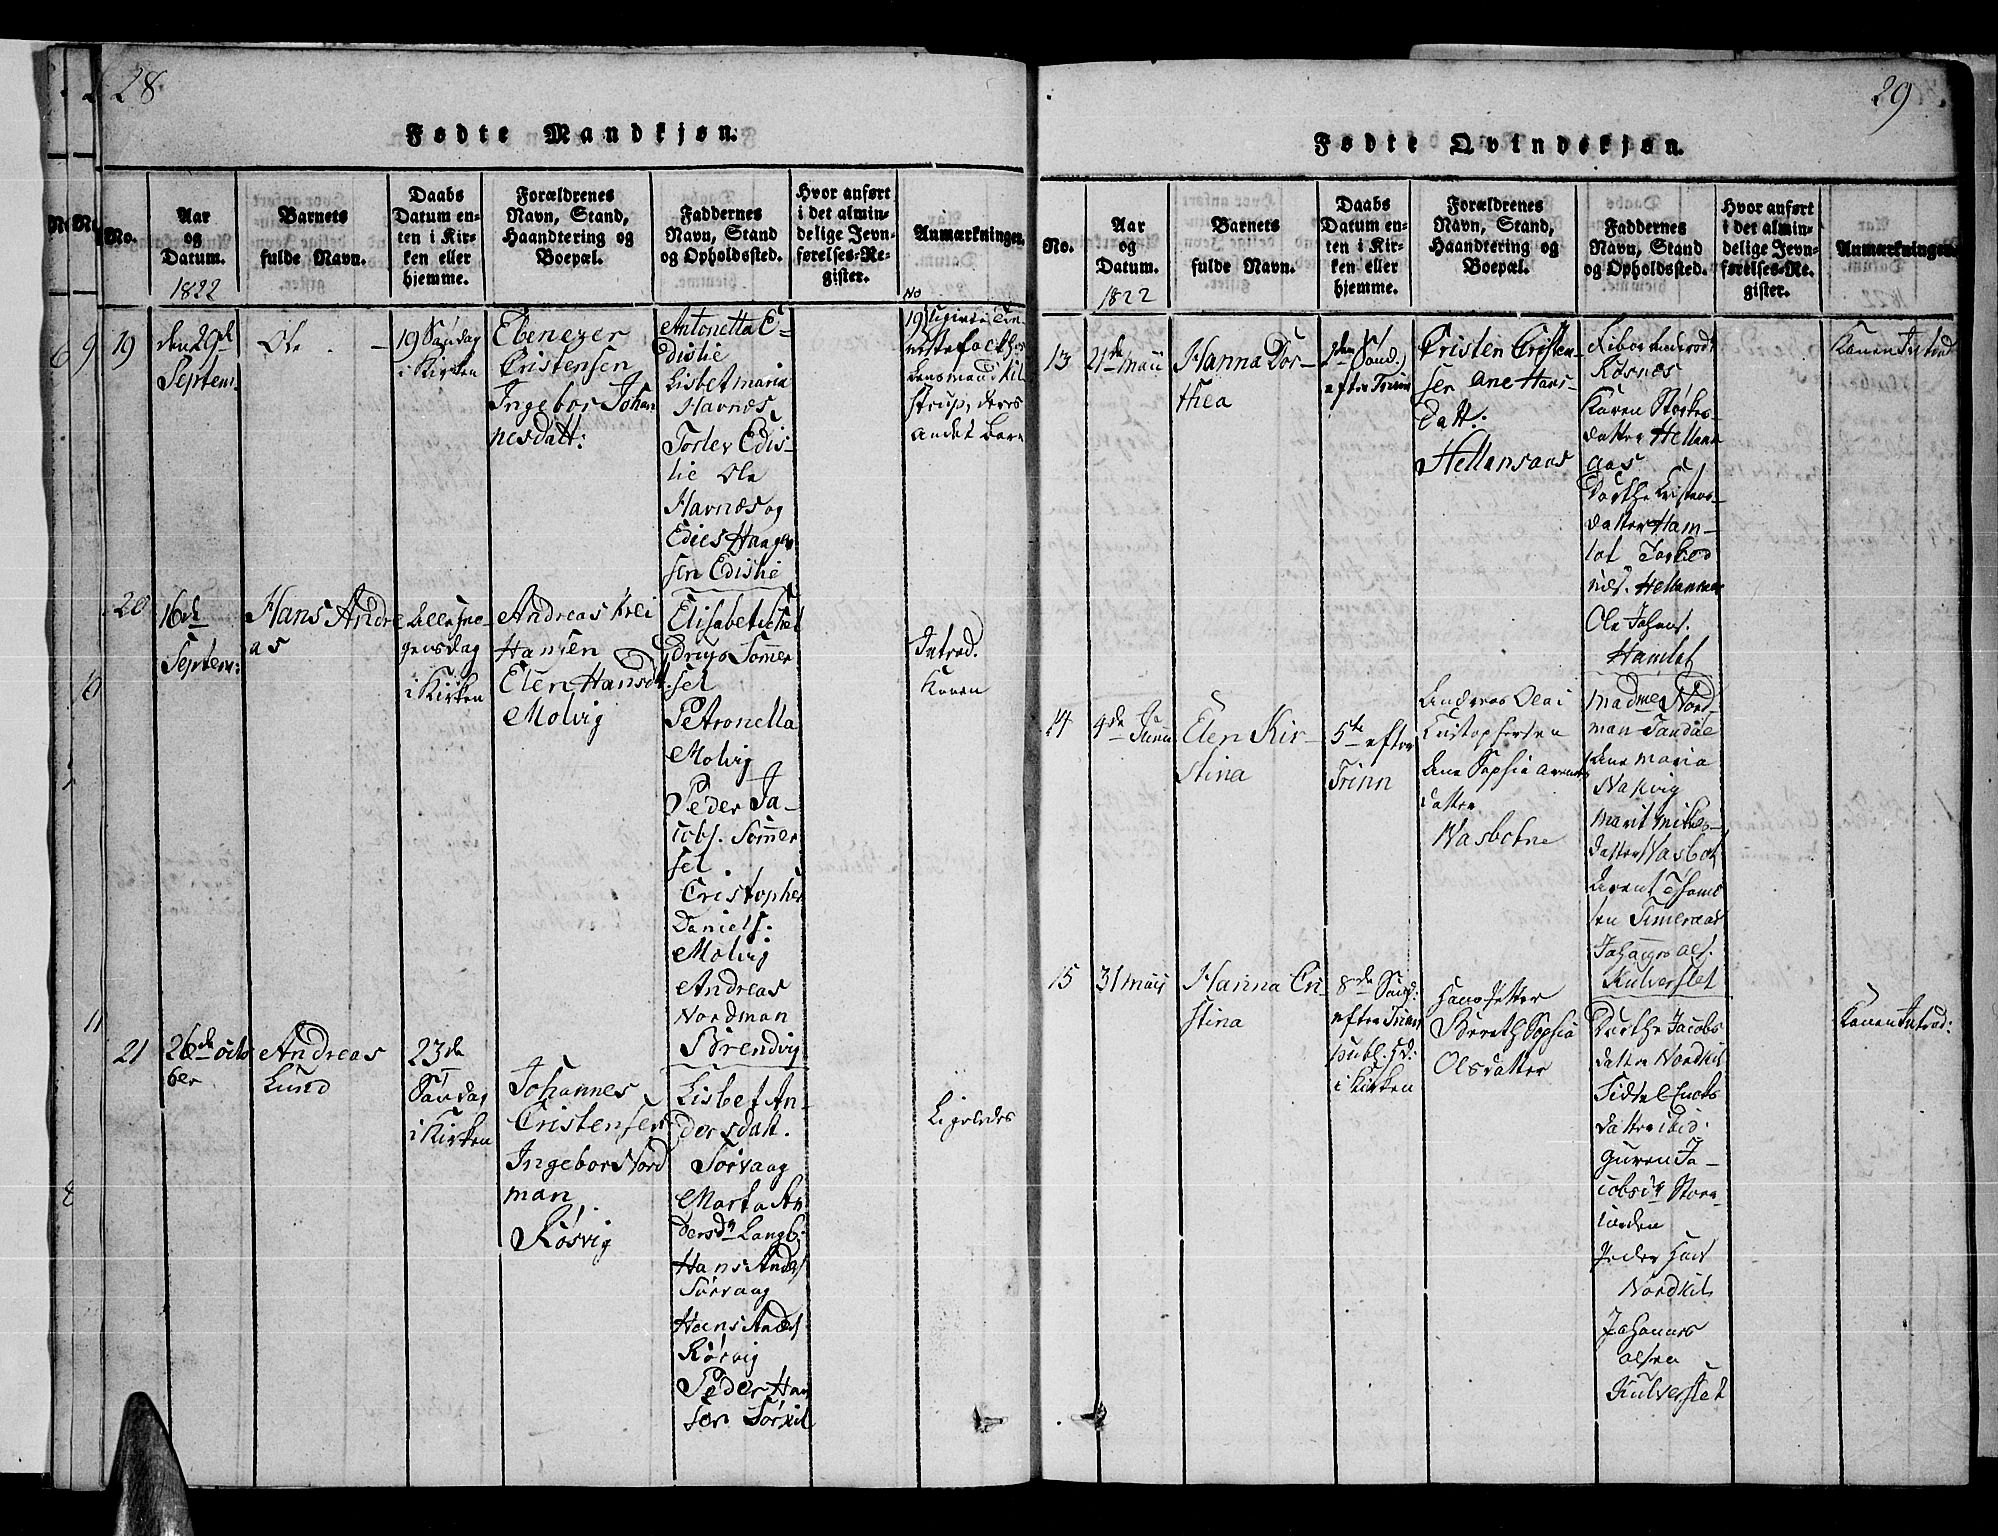 28
Fødte Mandkjøn.
No.
Aar
og
Datum.
1822
Barnets
fulde Navn.
Daabs
Datum en-
ten i Kir-
ken eller
hjemme.
Forældrenes
Navn, Stand,
Haandtering og
Boepæl.
Faddernes
Navn, Stand
og Opholdssted.
Hvor anført
i det almin-
delige Jevn-
førelses-Re-
gister.
Anmærkninger.
19
den 29de
Septem.
Ole
19 Søndag
i Kirken
Ebenezer
Cristensen
Ingebor Johan
nesdatt:
Antonetta E-
dislie
Lisbet maria
Havnæs
Torlev Edis-
lie Ole
Havnæs og
Edies Haagen
sen Edislie
No
19
deres
andet barn
20
16de
Septem:
Hans Andre
as
i Kirken
Andreas Krei
Hansen
Elen Hansd
Molvig
Elisabet
Sommer
sel
Petronella
Molvig
Peder Ja-
cobs. Sommer
sel
Cristopher
Daniels.
Molvig
Andreas
Nordman
Sørendvig
Introd.
Konen
21
26de octo
ber
Andreas
Lund
23de
Søndag
i Kirken
Johannes
Cristensen
Ingebor Nord
man
Røsvig
Lisbet An-
dersdatt.
Sørvaag
Marta An
dersdr Langb.
Hans Anders
Sørvaag
Hans Anders
Røsvig
Peder Han
sen Sørkil
Ligeledes
29
Fødte Qvindekjøn.
No.
Aar
og
Datum.
1822
Barnets
fulde Navn.
Daabs
Datum en-
ten i Kir-
ken eller
hjemme.
Forældrenes
Navn, Stand,
Haandtering og
Boepæl.
Faddernes
Navn, Stand
og Opholdssted.
Hvor anført
i det almin-
delige Jevn-
førelses-Re-
gister.
Anmærkninger.
13
21de maii
Hanna Dor-
thea
Sønd.
efter Trinn
Cristen Cristen-
sen Ane Hans-
datt.
Hellansaas
Røsnæs
Karen Størkes-
datter Hellans
aas
Dorthe Cristens-
datter Ham-
lot
Hellansaas
Ole Johans.
Hamlot
Konen Introd
14
9de Junii
Elen Kir-
stina
5te efter
Trinn
Andreas Olai
Cristophersen
Ane Sophia Arents
datter
Nasbotne
Madme Nord-
man Tandøe
Ane Maria
Naxvig
Marit Mikels-
datter Nasbot
Arent Thoms
sen Timeraas
Kulverslet
15
31 maii
Hanna Cri-
stina
8de Sønd:
efter Trinn
publ. Hd:
i Kirken
Hans Petter
Bereth Sophia
Olsdatter
Dorthe Jacobs
datter Nordkil
Sidtel Enoks
datter ibid.
Guren Ja-
cobsdr Store-
jorden
Peder Hans
Nordkil
Johannes
Olsen
Kulverslet
Konen Introd: